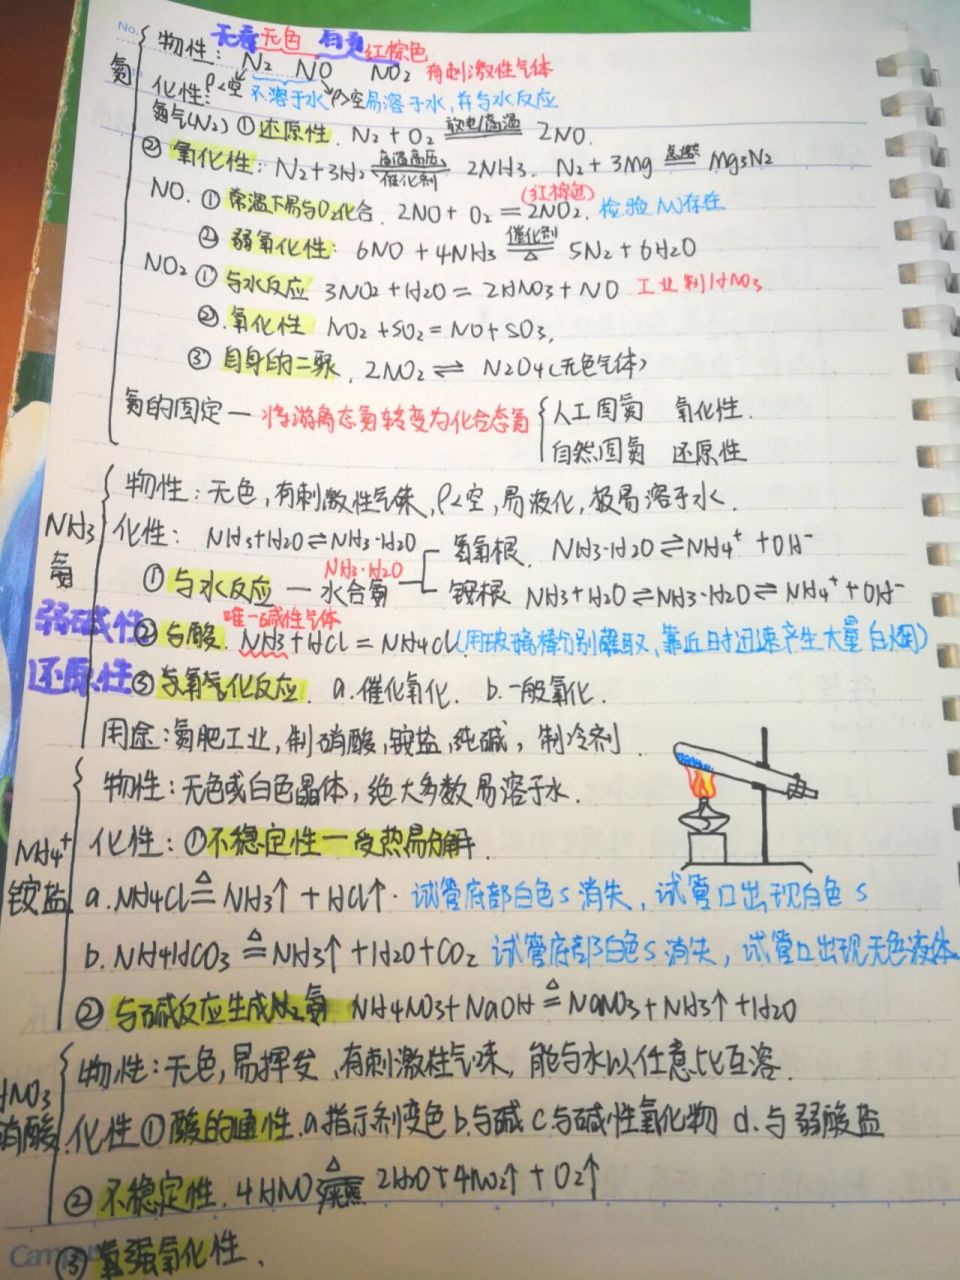 No.
无毒无色 有毒红棕色
氮 物性: N2 NO NO2 有刺激性气体
化性: ρ<空 不溶于水 ρ>空 易溶于水,并与水反应
氮气(N2) ①还原性. N2+O2 放电/高温 2NO.
②氧化性: N2+3H2 高温高压 催化剂 2NH3. N2+3Mg 点燃 Mg3N2
(红棕色)
NO. ①常温下易与O2化合. 2NO+O2=2NO2. 检验NO存在
②弱氧化性: 6NO+4NH3 催化剂 △ 5N2+6H2O
NO2 ①与水反应 3NO2+H2O=2HNO3+NO 工业制HNO3
②.氧化性 NO2+SO2=NO+SO3,
③自身的二聚. 2NO2⇌N2O4(无色气体)
氮的固定—将游离态氮转变为化合态氮 人工固氮 氧化性.
自然固氮 还原性
物性:无色,有刺激性气味,ρ<空,易液化,极易溶于水.
NH3 氨 化性: NH3+H2O⇌NH3·H2O 氢氧根. NH3·H2O⇌NH4⁺+OH⁻
①与水反应—NH3·H2O 水合氨 铵根 NH3+H2O⇌NH3·H2O⇌NH4⁺+OH⁻
唯一碱性气体
弱碱性 ②与酸. NH3+HCl=NH4Cl(用玻璃棒分别蘸取,靠近时迅速产生大量白烟)
还原性 ③与氧气化反应. a.催化氧化. b.一般氧化.
用途:氮肥工业,制硝酸,铵盐,纯碱,制冷剂.
物性:无色或白色晶体,绝大多数易溶于水.
NH4⁺ 铵盐 化性:①不稳定性—受热易分解.
a.NH4Cl △= NH3↑+HCl↑. 试管底部白色s消失,试管口出现白色s
b.NH4HCO3 △= NH3↑+H2O+CO2 试管底部白色s消失,试管口出现无色液体
②与碱反应生成 氨 NH4NO3+NaOH △= NaNO3+NH3↑+H2O
HNO3 硝酸 物性:无色,易挥发,有刺激性气味,能与水以任意比互溶.
化性①酸的通性.a.指示剂变色 b.与碱 c.与碱性氧化物 d.与弱酸盐
②不稳定性. 4HNO3 △ 2H2O+4NO2↑+O2↑
③强氧化性.
Campus